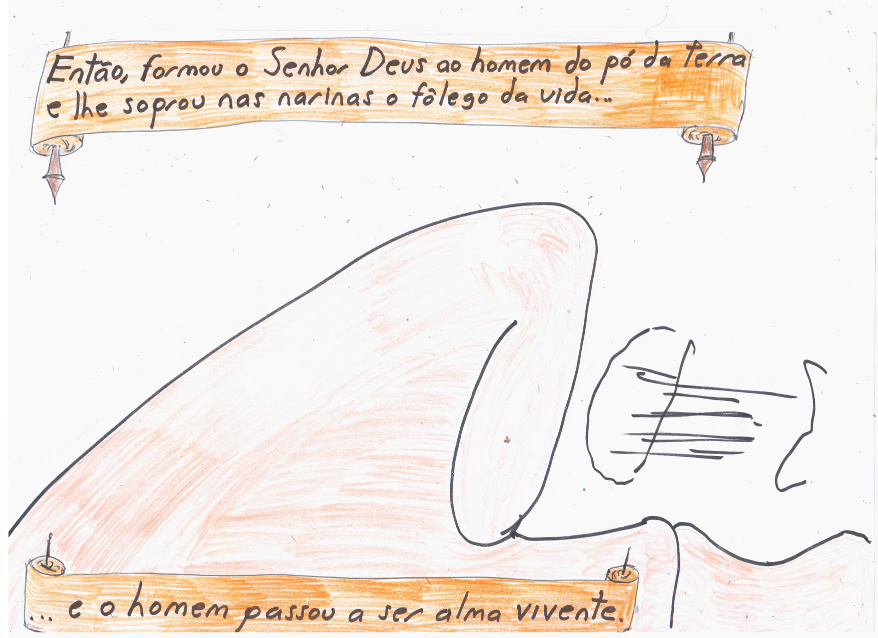 Então, formou o Senhor Deus ao homem do pó da terra
e lhe soprou nas narinas o fôlego da vida...
... e o homem passou a ser alma vivente.